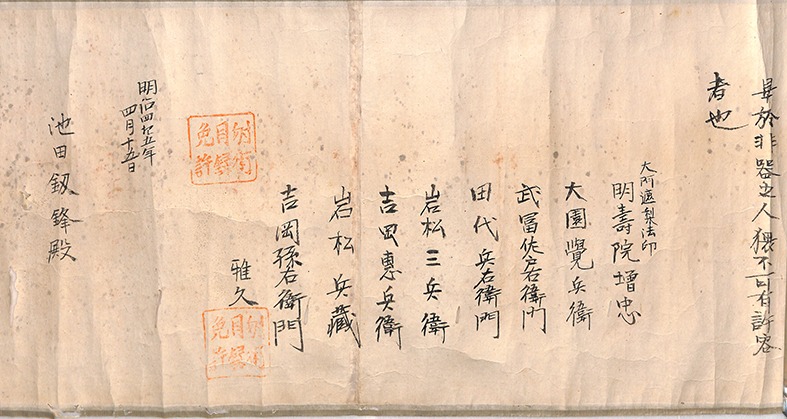 畢於非器之人猥不可有許容
者也
大阿遮梨法印
明壽院増忠
大園覺兵衛
武冨佐右衛門
田代兵右衛門
岩松三兵衛
吉岡惠兵衛
岩松兵藏
吉岡孫右衛門
雅久
射術
目録
免許
射術
目録
免許
明治四十五年
四月十五日
池田釼鋒殿